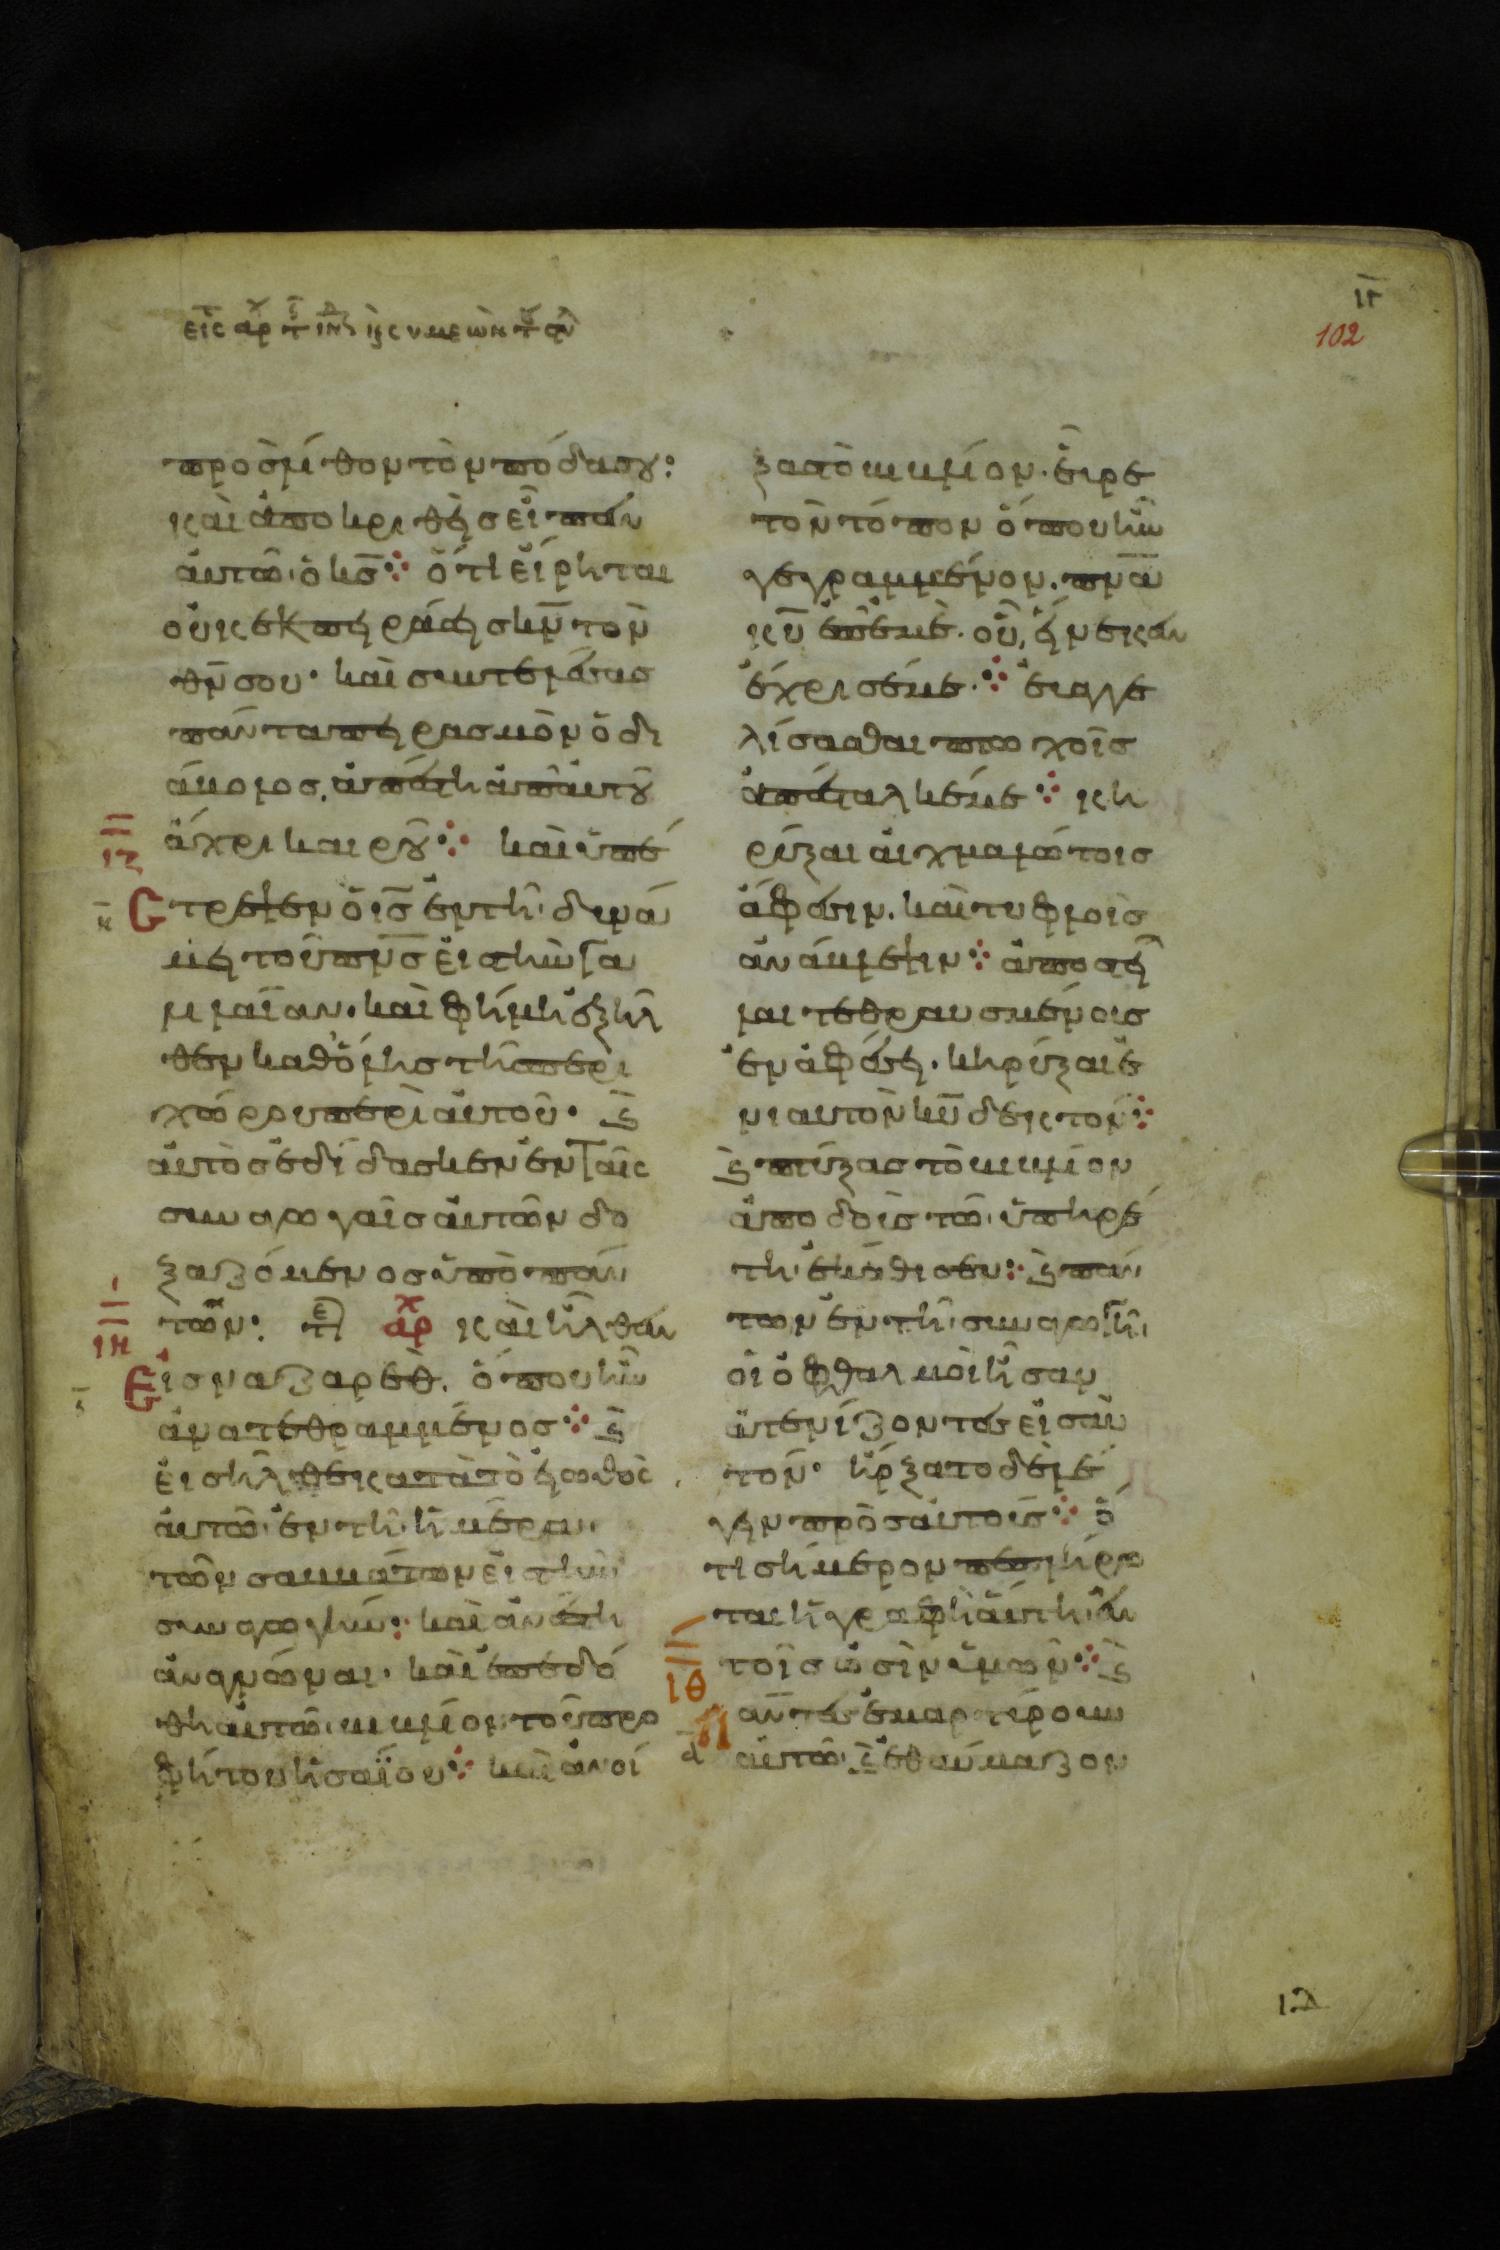 ιγ
102
προς λίθον τὸν πόδα σου:
καὶ ἀποκριθεὶς εἶπεν
αὐτῶ ὁ ις ὅτι εἴρηται
οὐκ ἐκπειράσεις κν τὸν
θν σου· καὶ συντελέσας
πάντα πειρασμὸν ὁ δι
άβολος, ἀπέστη ἀπ αὐτοῦ
ἄχρι καιροῦ καὶ ὑπέ
ιζ
στρεψεν ὁ ις ἐν τῆ δυνά
μει τοῦ πνς εἰς τὴν γα
λιλαίαν· καὶ φήμη ἐξῆλ
θεν καθ ὅλης τῆς περι
χώρου περὶ αὐτοῦ· καὶ
αὐτὸς ἐδίδασκεν ἐν ταῖς
συναγωγαῖς αὐτῶν δο
ξαζόμενος ὑπὸ πάν
των: τε αρχ καὶ ἦλθεν
ιη
εἰς ναζαρὲθ, ὅπου ἦν
ἀνατεθραμμένος καὶ
εἰσῆλθε κατὰ τὸ εἰωθὸς
αὐτῶ ἐν τῆ ἡμέρα
τῶν σαββάτων εἰς τὴν
συναγωγήν: καὶ ἀνέστη
ἀναγνῶναι· καὶ ἐπεδό
θη αὐτῶ βιβλίον τοῦ προ
φήτου ἡσαΐου καὶ ἀνοί
ξας τὸ βιβλίον· εὗρε
τὸν τόπον ὅπου ἦν
γεγραμμένον. πνα
κυ ἐπ ἐμὲ. οὗ εἵνεκεν
ἔχρισέ με· εὐαγγε
λίσασθαι πτωχοῖς
ἀπέσταλκέ με κη
ρύξαι αἰχμαλώτοις
ἄφεσιν. καὶ τυφλοῖς
ἀνάβλεψιν ἀποστεῖ
λαι τεθραυσμένους
ἐν ἀφέσει. κηρύξαι ἐ
νιαυτὸν κυ δεκτόν
καὶ πτύξας τὸ βιβλίον
ἀποδοὺς τῶ ὑπηρέ
τη ἐκάθισεν: καὶ πάν
των ἐν τῆ συναγωγῆ
οἱ ὀφθαλμοὶ ἦσαν
ἀτενίζοντες εἰς αὐ
τόν· ἤρξατο δὲ λέ
γειν πρὸς αὐτοὺς ὅ
τι σήμερον πεπλήρω
ται ἡ γραφὴ αὕτη ἐν
τοῖς ὠσὶν ὑμῶν καὶ
ιθ
πάντες ἐμαρτύρουν
αὐτῶ καὶ ἐθαύμαζον